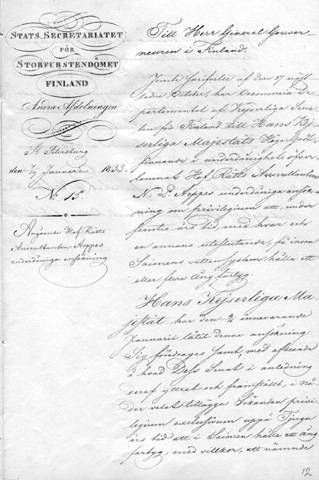 STATS-SECRETARIATET
FÖR
STORFURSTENDÖMET
FINLAND
Andra Afdelningen
St Petersburg
den Januari 1833.
No 15.
Angående Hof Rätts
Auscultanten Arppes
underdåniga ansökning
Till Herr General Gouver-
neuren i Finland.
af den 17 näst-
ledne October, har Oeconomie De-
partementet af Kejserliga Sena-
ten för Finland till Hans Kej-
serliga Majestäts Höga
i underdånighet öfver-
lemnat Hof Rätts Auscultanten
N. L. Arppes underdåniga ansök-
ning om privilegium att, under
femtio års tid, med hvar och
en annans uteslutande, på inom
Saimens vatten system hålla ett
eller flere ång fartyg.
Hans Kejserliga Ma-
jestät har den innevarande
Januarii låtit denna ansökning
Sig föredragas samt, med afseende
å hvad Dess Senat i anledning
deraf yttrat och framställt, i nå-
der velat tillägga Sökanden privi-
legium exclusivum uppå Tjugu
års tid att i Saimen hålla ett ång
fartyg, med villkor, att nämnde
12